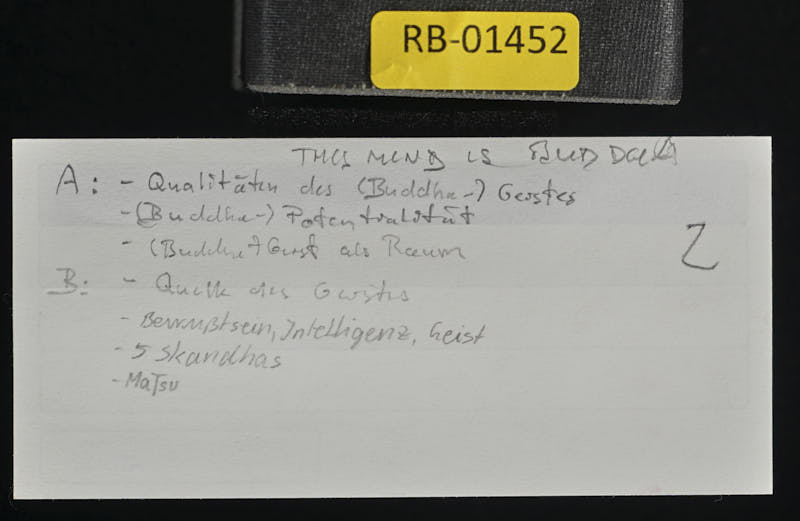 RB-01452
THIS MIND IS BUDDHA
A: - Qualitäten des (Buddha-) Geistes
- (Buddha-) Potentialität
- (Buddha-) Geist als Raum
2
B: - Quelle des Geistes
- Bewußtsein, Intelligenz, Geist
- 5 Skandhas
- MaTsu